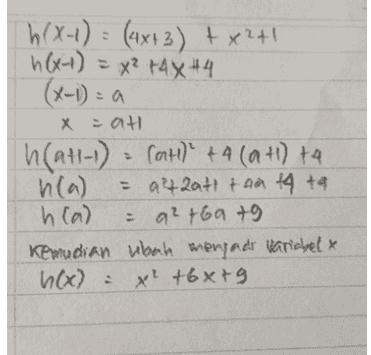 h(x-1) = (4x+3) + x²+1
h(x-1) = x² +4x+4
(x-1) = a
x = a+1
h(a+1-1) = (a+1)² +4 (a+1) +4
h(a) = a²+2a+1 +4a +4 +4
h(a) = a² +6a +9
Kemudian ubah menjadi variabel x
h(x) = x² +6x+9